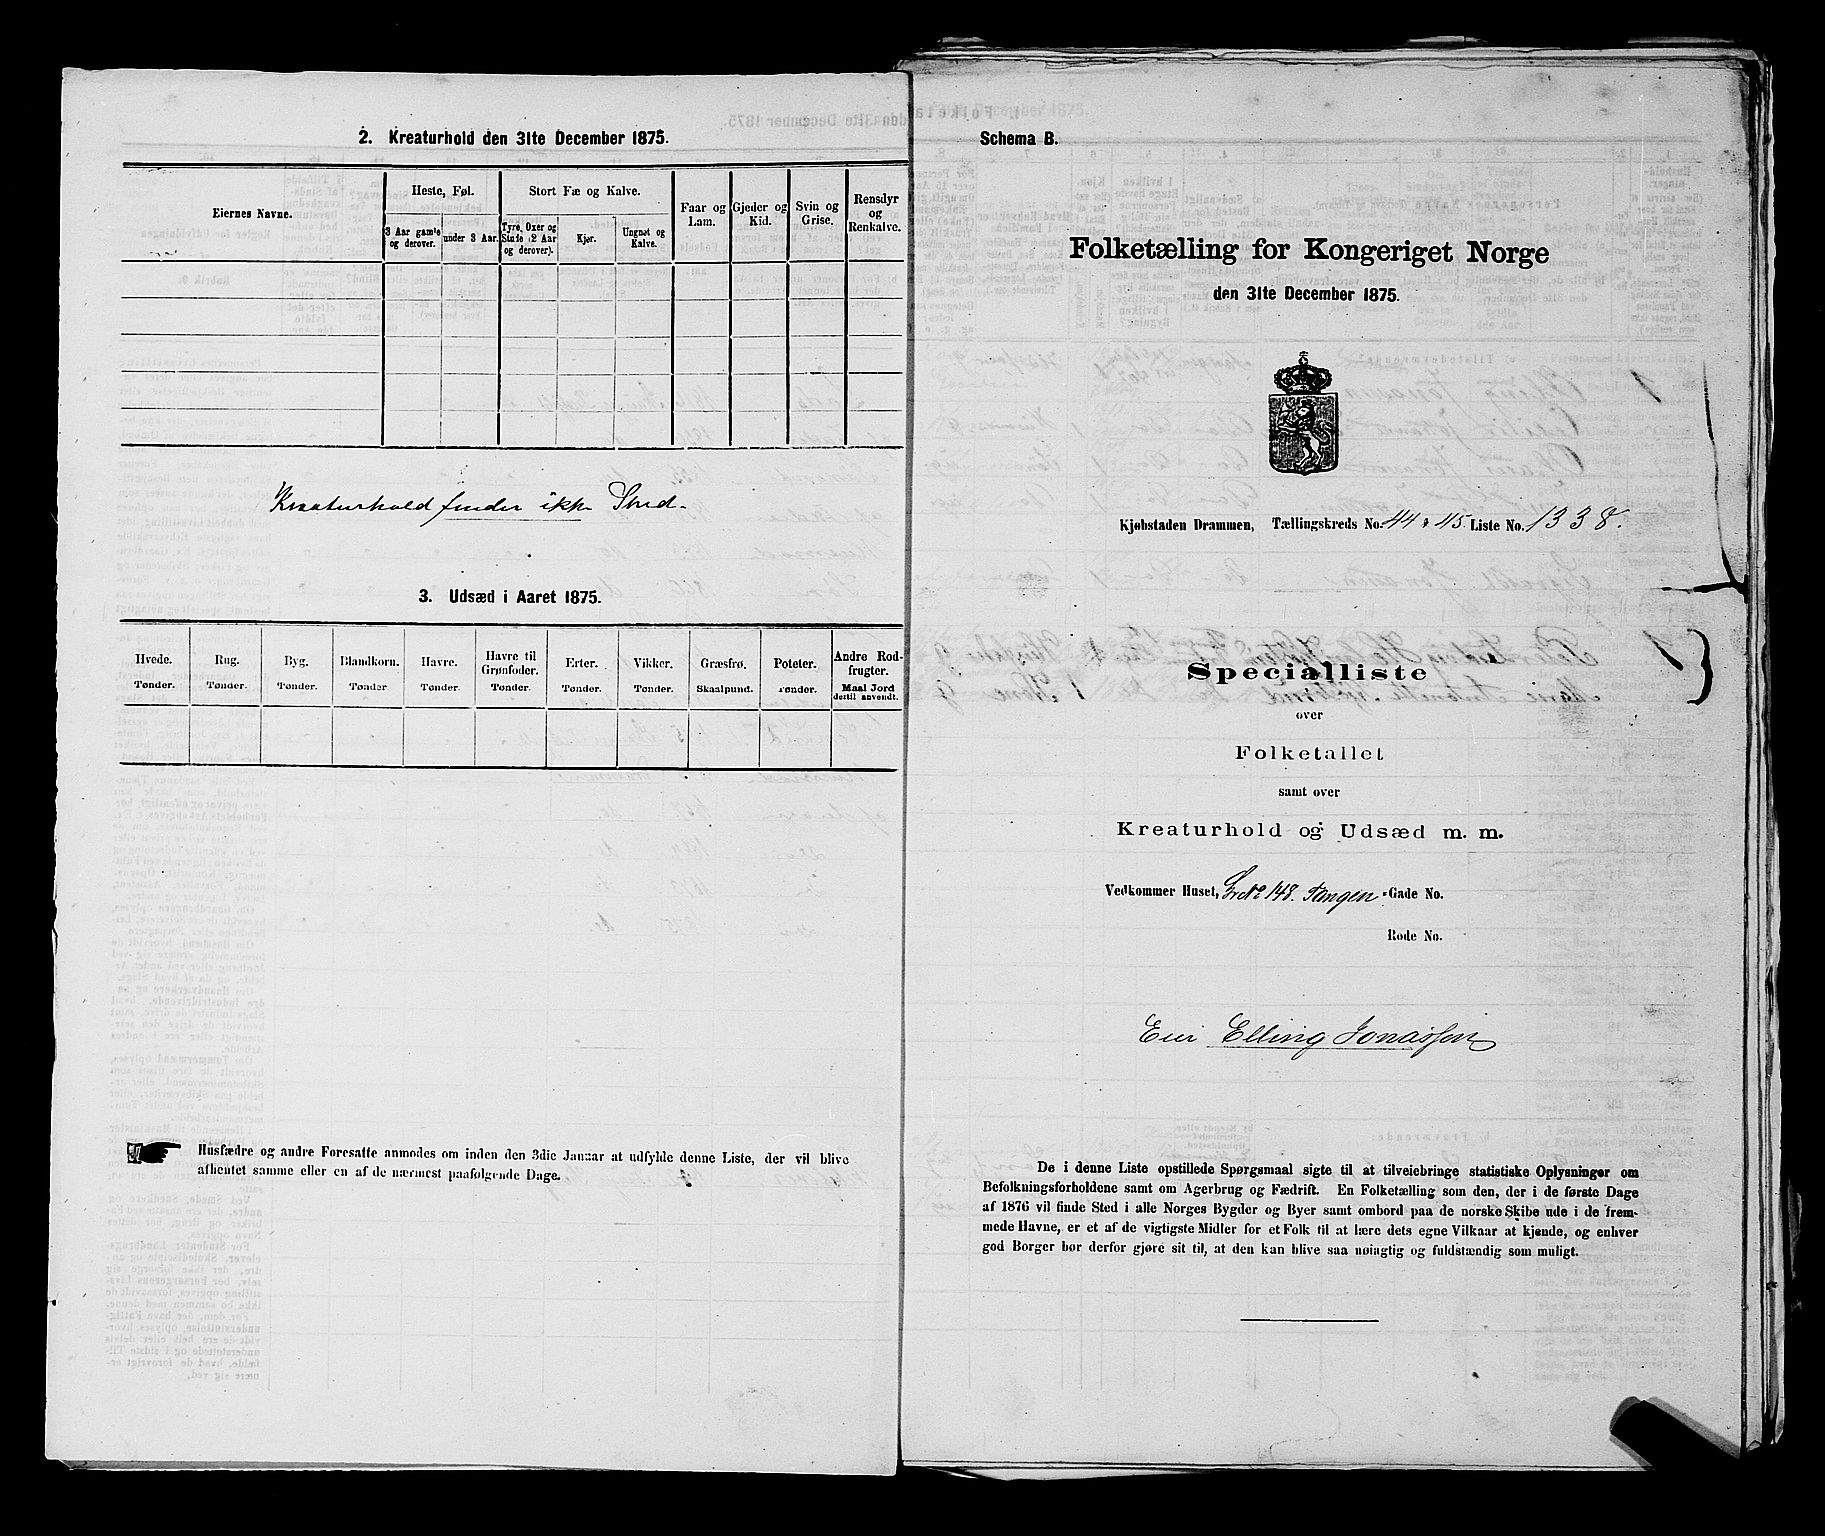 2. Kreaturhold den 31te December 1875.
Eiernes Navne.
Heste, Føl.
3 Aar gamle og derover.
under 3 Aar.
Stort Fæ og Kalve.
Tyre, Oxer og Stude (2 Aar og derover).
Kjør.
Ungnøt og Kalve.
Faar og Lam.
Gjeder og Kid.
Svin og Grise.
Rensdyr og Renkalve.
Kreaturhold finder ikke Sted.
3. Udsæd i Aaret 1875.
Hvede. Tønder.
Rug. Tønder.
Byg. Tønder.
Blandkorn. Tønder
Havre. Tønder.
Havre til Grønfoder. Tønder.
Erter. Tønder.
Vikker. Tønder.
Græsfrø. Skaalpund.
Poteter. Tønder.
Andre Rodfrugter. Maal Jord dertil anvendt.
Husfædre og andre Foresatte anmodes om inden den 3die Januar at udfylde denne Liste, der vil blive
afhentet samme eller en af de nærmest paafølgende Dage.
Schema B.
Folketælling for Kongeriget Norge
den 31te December 1875.
Kjøbstaden Drammen, Tællingskreds No. 44 & 45. Liste No. 1338.
Specialliste
over
Folketallet
samt over
Kreaturhold og Udsæd m. m.
Vedkommer Huset, 148. Tangen Gade No.
Rode No.
Eier Elling Jonassen
De i denne Liste opstillede Spørgsmaal sigte til at tilveiebringe statistiske Oplysninger om
Befolkningsforholdene samt om Agerbrug og Fædrift. En Folketælling som den, der i de første Dage
af 1876 vil finde Sted i alle Norges Bygder og Byer samt ombord paa de norske Skibe ude i de frem-
mede Havne, er et af de vigtigste Midler for et Folk til at lære dets egne Vilkaar at kjende, og enhver
god Borger bør derfor gjøre sit til, at den kan blive saa nøiagtig og fuldstændig som muligt.